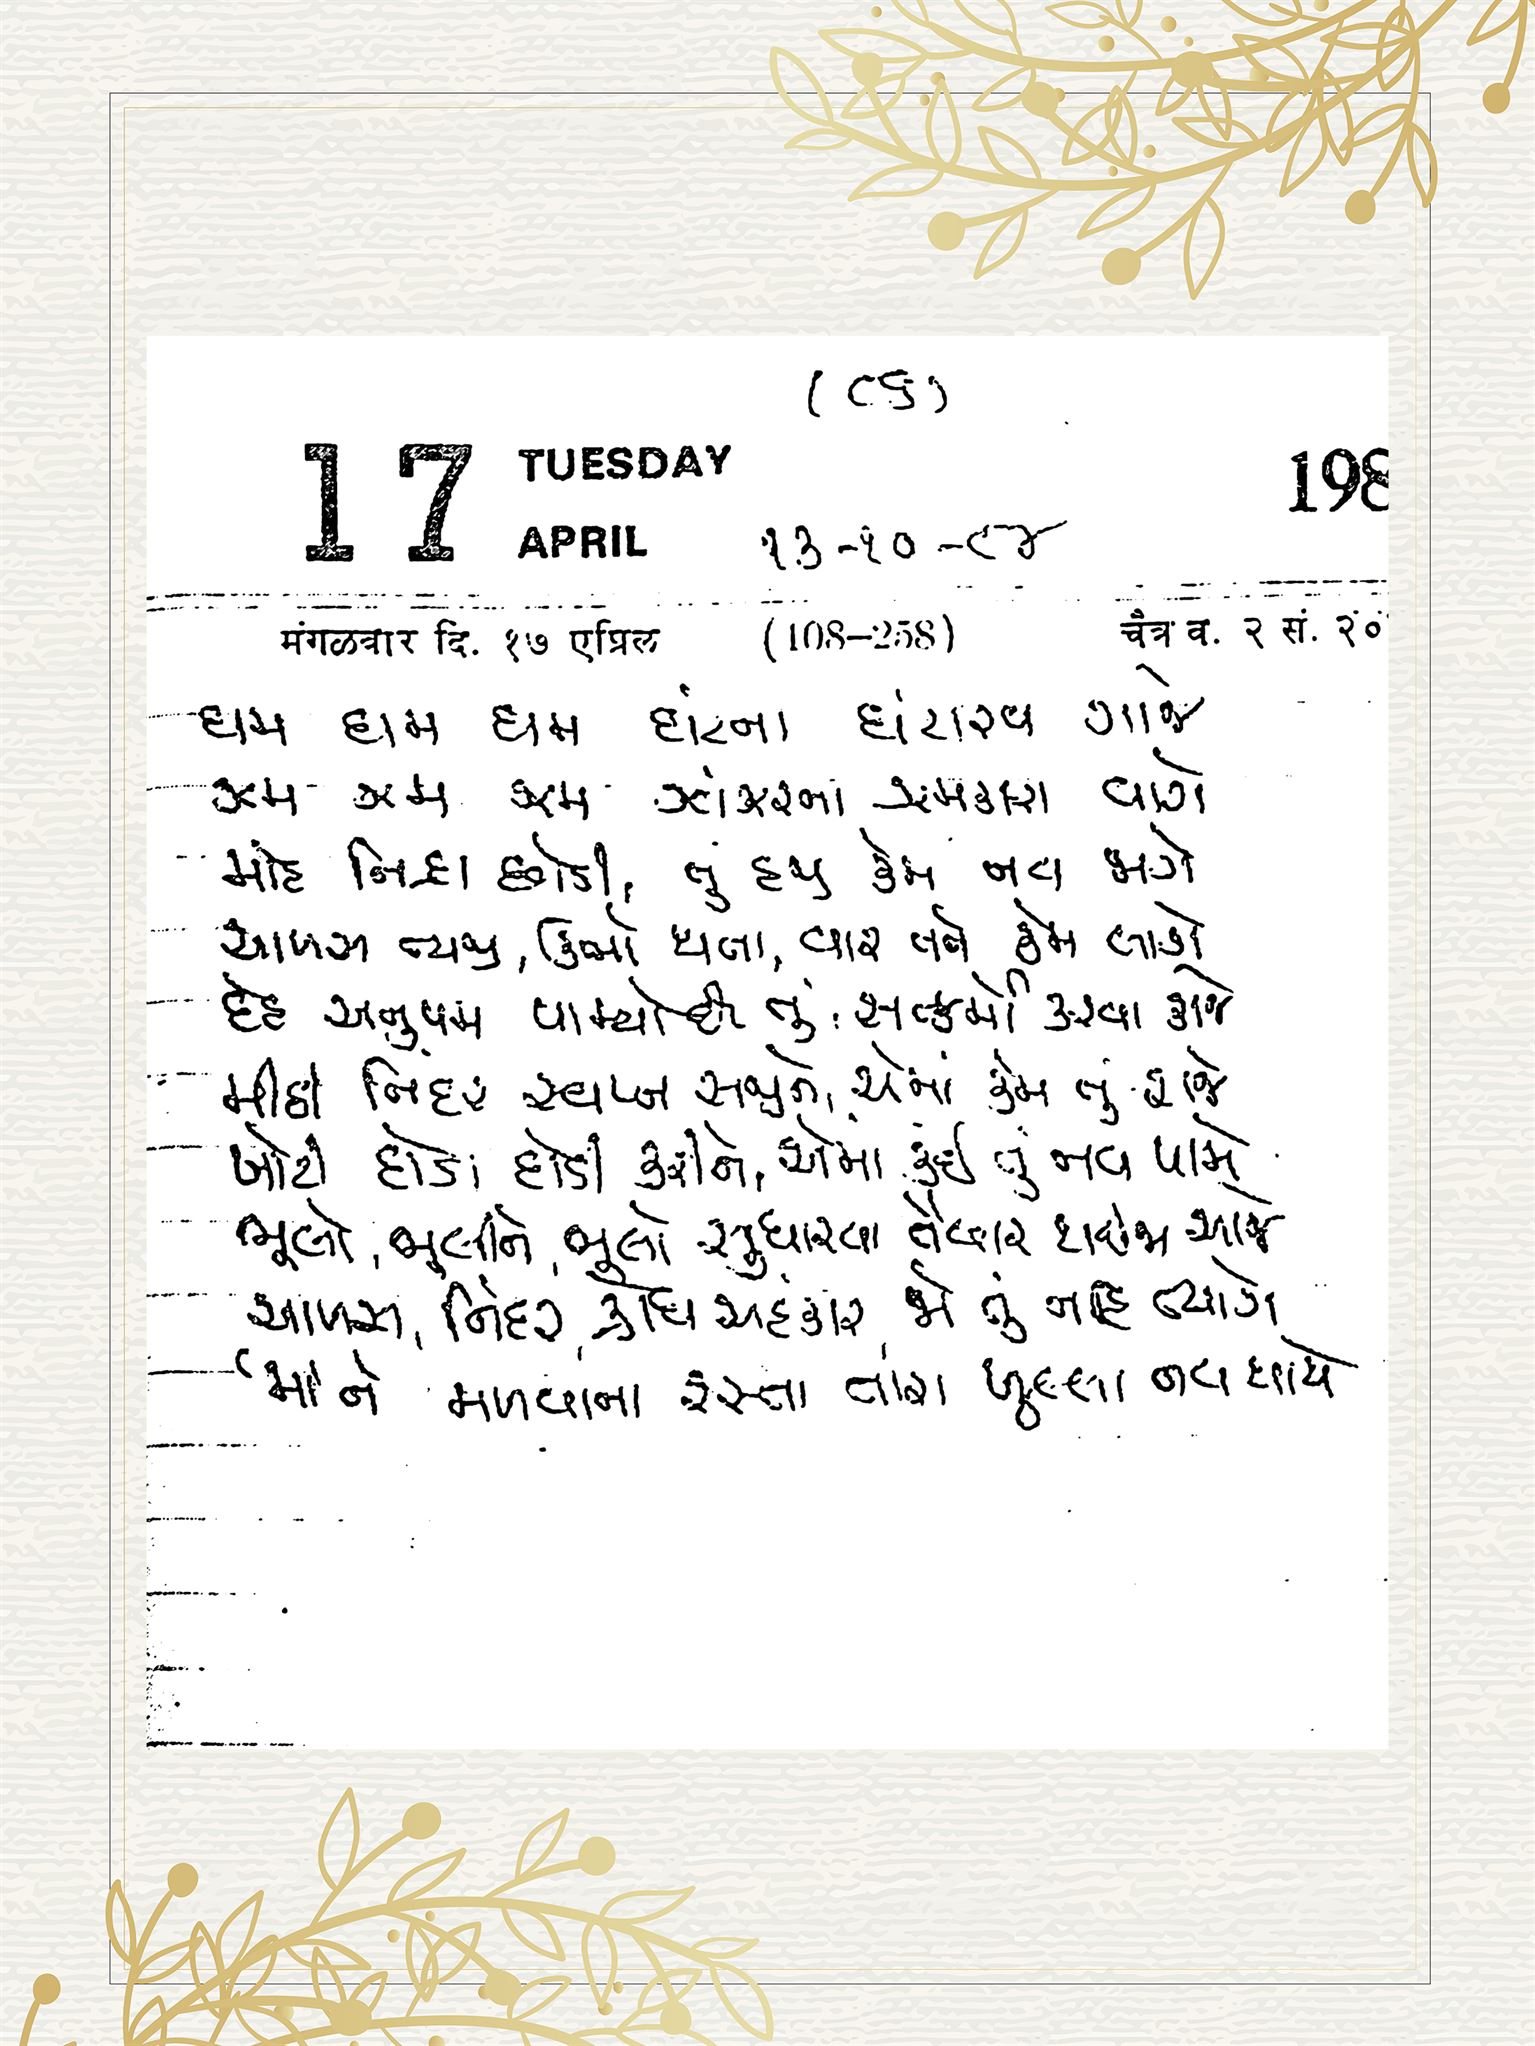 (૮૬)
17 TUESDAY 198
APRIL ૧૩-૧૦-૮૪
मंगळवार दि. १७ एप्रिल (108–258) चैत्र व. २ सं. २०
ઘમ ઘમ ઘમ ઘંટના ઘંટારવ ગાજે
ઝમ ઝમ ઝમ ઝાંઝરના ઝમકારા વાગે
મોહ નિદ્રા છોડી, તું હજુ કેમ નવ જાગે
આળસ ત્યજી, ઊભો થાતા, વાર તને કેમ લાગે
દેહ અનુપમ પામ્યો છે તું સત્કર્મો કરવા કાજે
મીઠી નિંદર સ્વપ્ન સજીને, એમાં કેમ તું રાજે
ખોટી દોડા દોડી કરીને, એમાં કંઈ તું નવ પામે
ભૂલો, ભુલીને, ભુલો સુધારવા તૈયાર થાજે આજે
આળસ, નિંદર, ક્રોધ અહંકાર, જો તું નહિ ત્યાગે
'મા' ને મળવાના રસ્તા તારા ખુલ્લા નવ થાયે